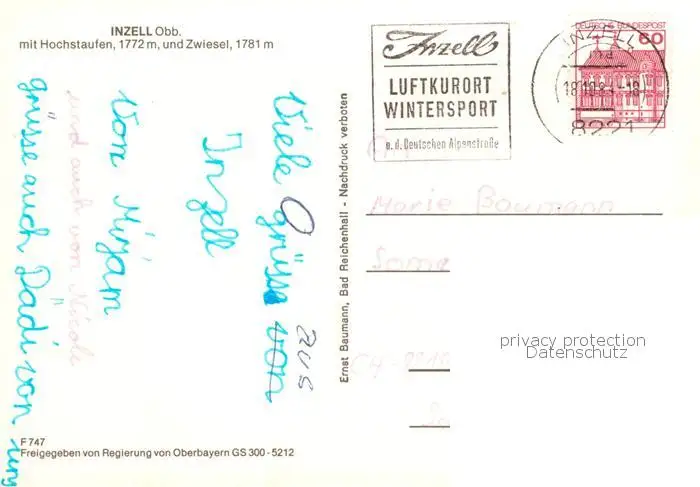 INZELL Obb.
mit Hochstaufen, 1772 m, und Zwiesel, 1781 m
Inzell
LUFTKURORT
WINTERSPORT
a.d. Deutschen Alpenstraße
DEUTSCHE BUNDESPOST
60
INZELL
8221
Viele grüsse von
aus
Inzell
von Mirjam
und auch von Nicole
grüsse auch Dädi von
Marie Baumann
Ernst Baumann, Bad Reichenhall - Nachdruck verboten
privacy protection
Datenschutz
F 747
Freigegeben von Regierung von Oberbayern GS 300-5212